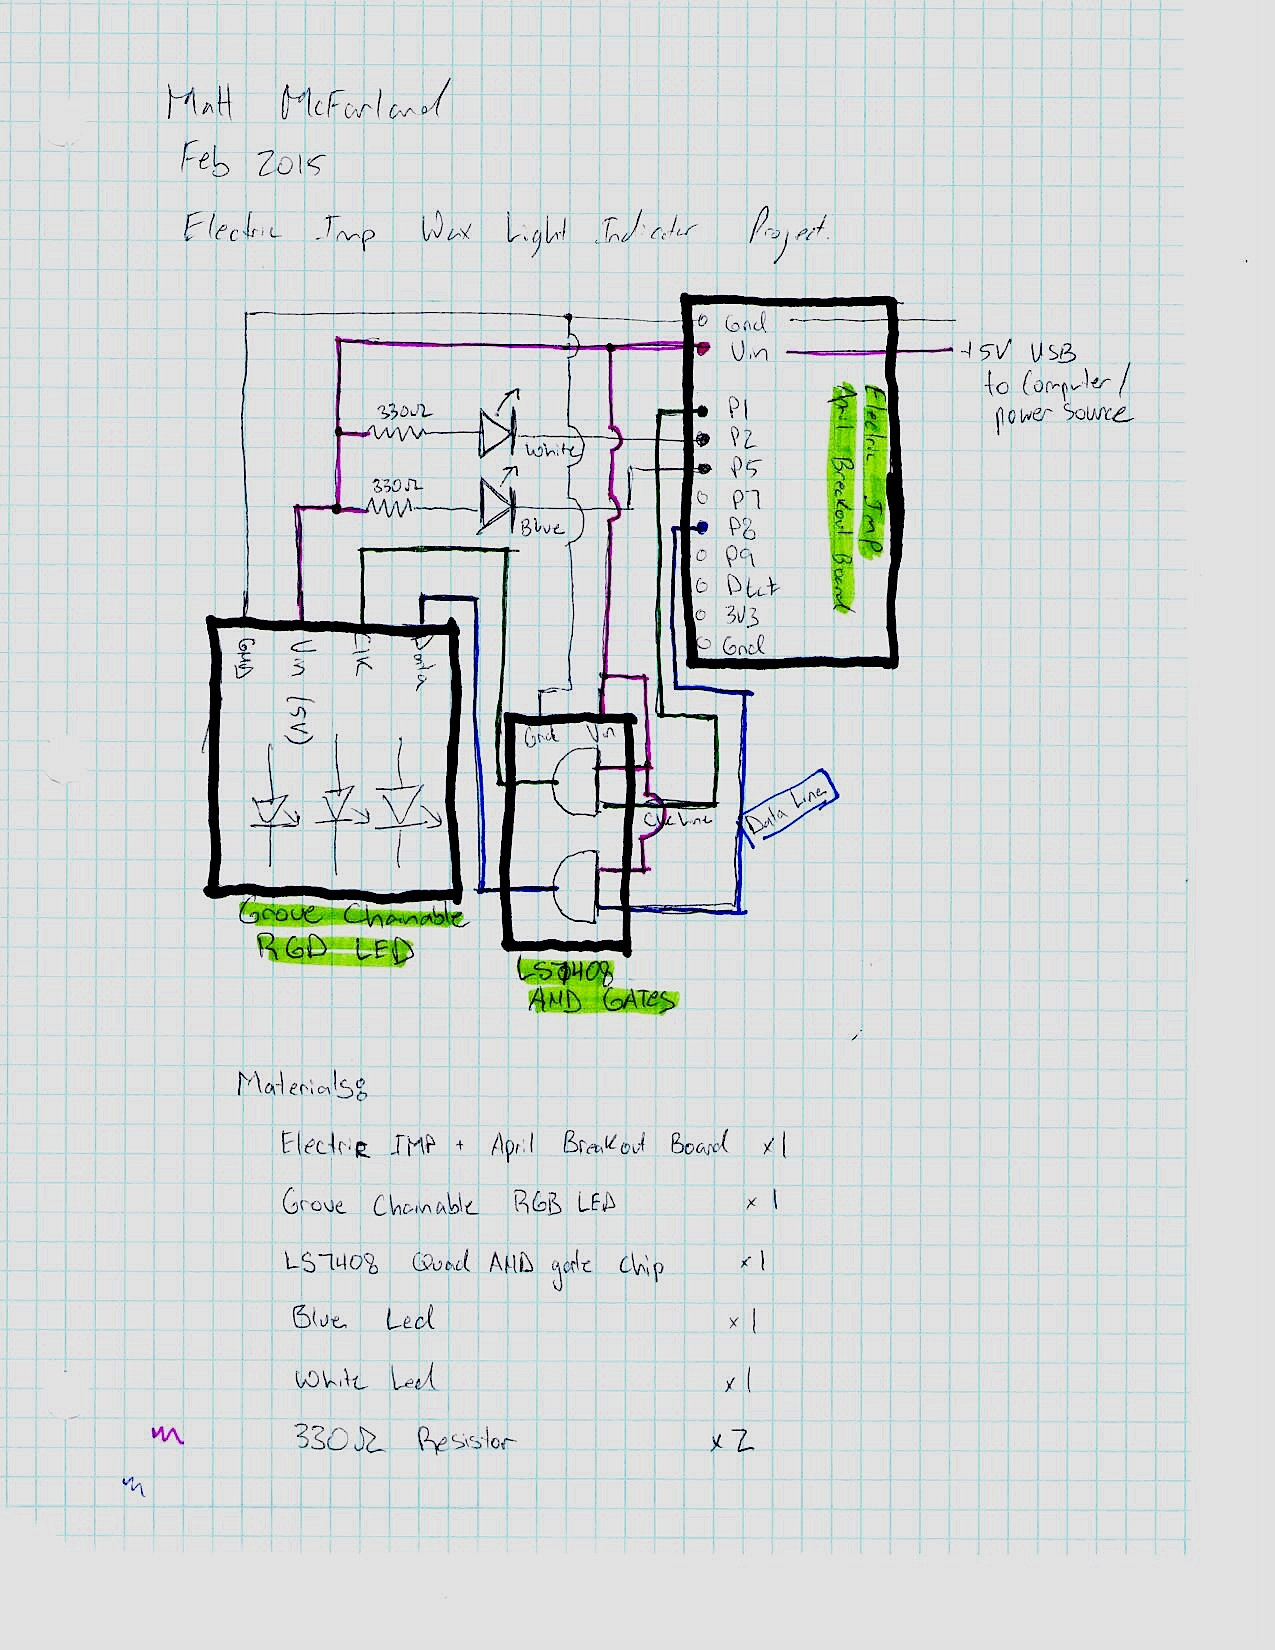 Matt McFarland
Feb 2015
Electric Imp Wax Light Indicator Project.
Gnd
Vin
+5V USB
to Computer/
power source
P1
P2
P5
P7
P8
P9
Dtct
3V3
Gnd
Electric Imp
April Breakout Board
330Ω
White
330Ω
Blue
GND
Vin (5V)
CLK
Data
Gnd Vin
Clk Line
Data Line
Grove Chainable
RGD LED
LS7408
AND GATES
Materials:
Electric IMP + April Breakout Board x1
Grove Chainable RGB LED x1
LS7408 Quad AND gate chip x1
Blue Led x1
White Led x1
330Ω Resistor x2